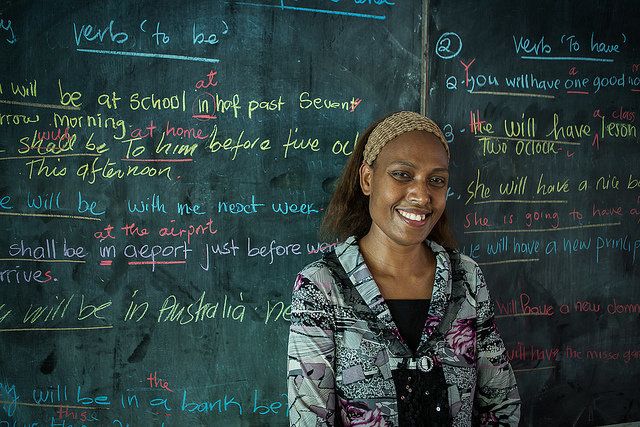 verb 'to be'
will be at school in hof past Seventy
at
rrow morning.
shall be To him before five oc
will at home
This afternoon.
e will be with me next week.
at the airport
shall be in aeport just before wen
rrives.
will be in Australia ne
the
will be in a bank be
this
②
verb 'To have'
Q. You will have one good
Y a
the will have leson
a class
Two Oclock
she will have a nice b
she is going to have a
will have a new princip
will have a new
will have the